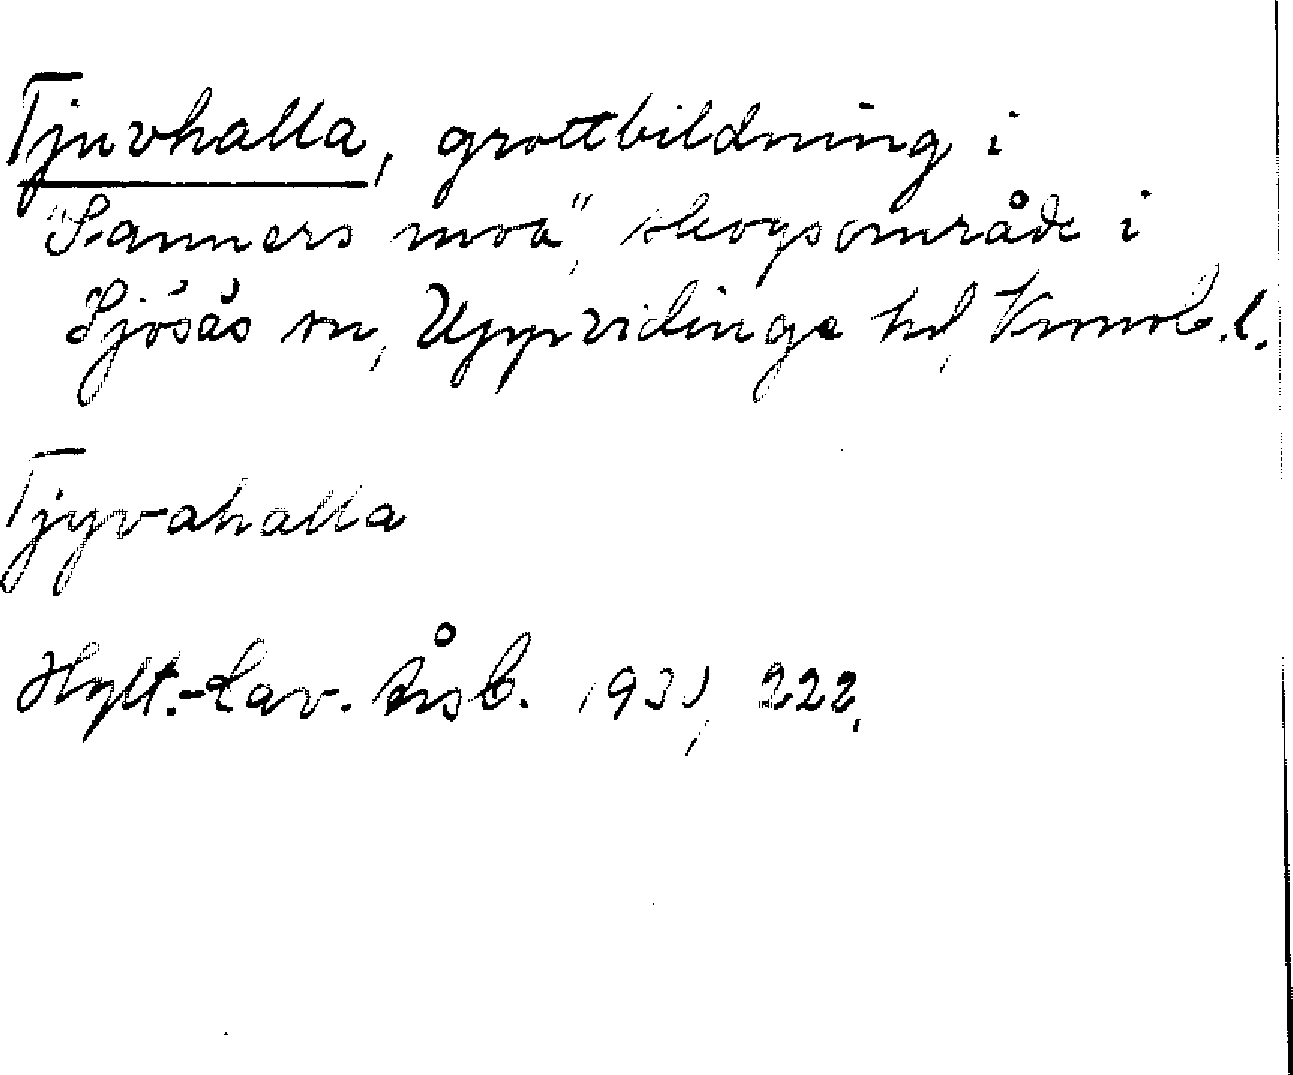 Tjuvhalla, grottbildning i
"Sanners moa", skogsområde i
Sjösås sn, Uppvidinge hd, Kronob.l.
Tjyvahalla
Hylt.-Cav. Årsb. 1931, 222.